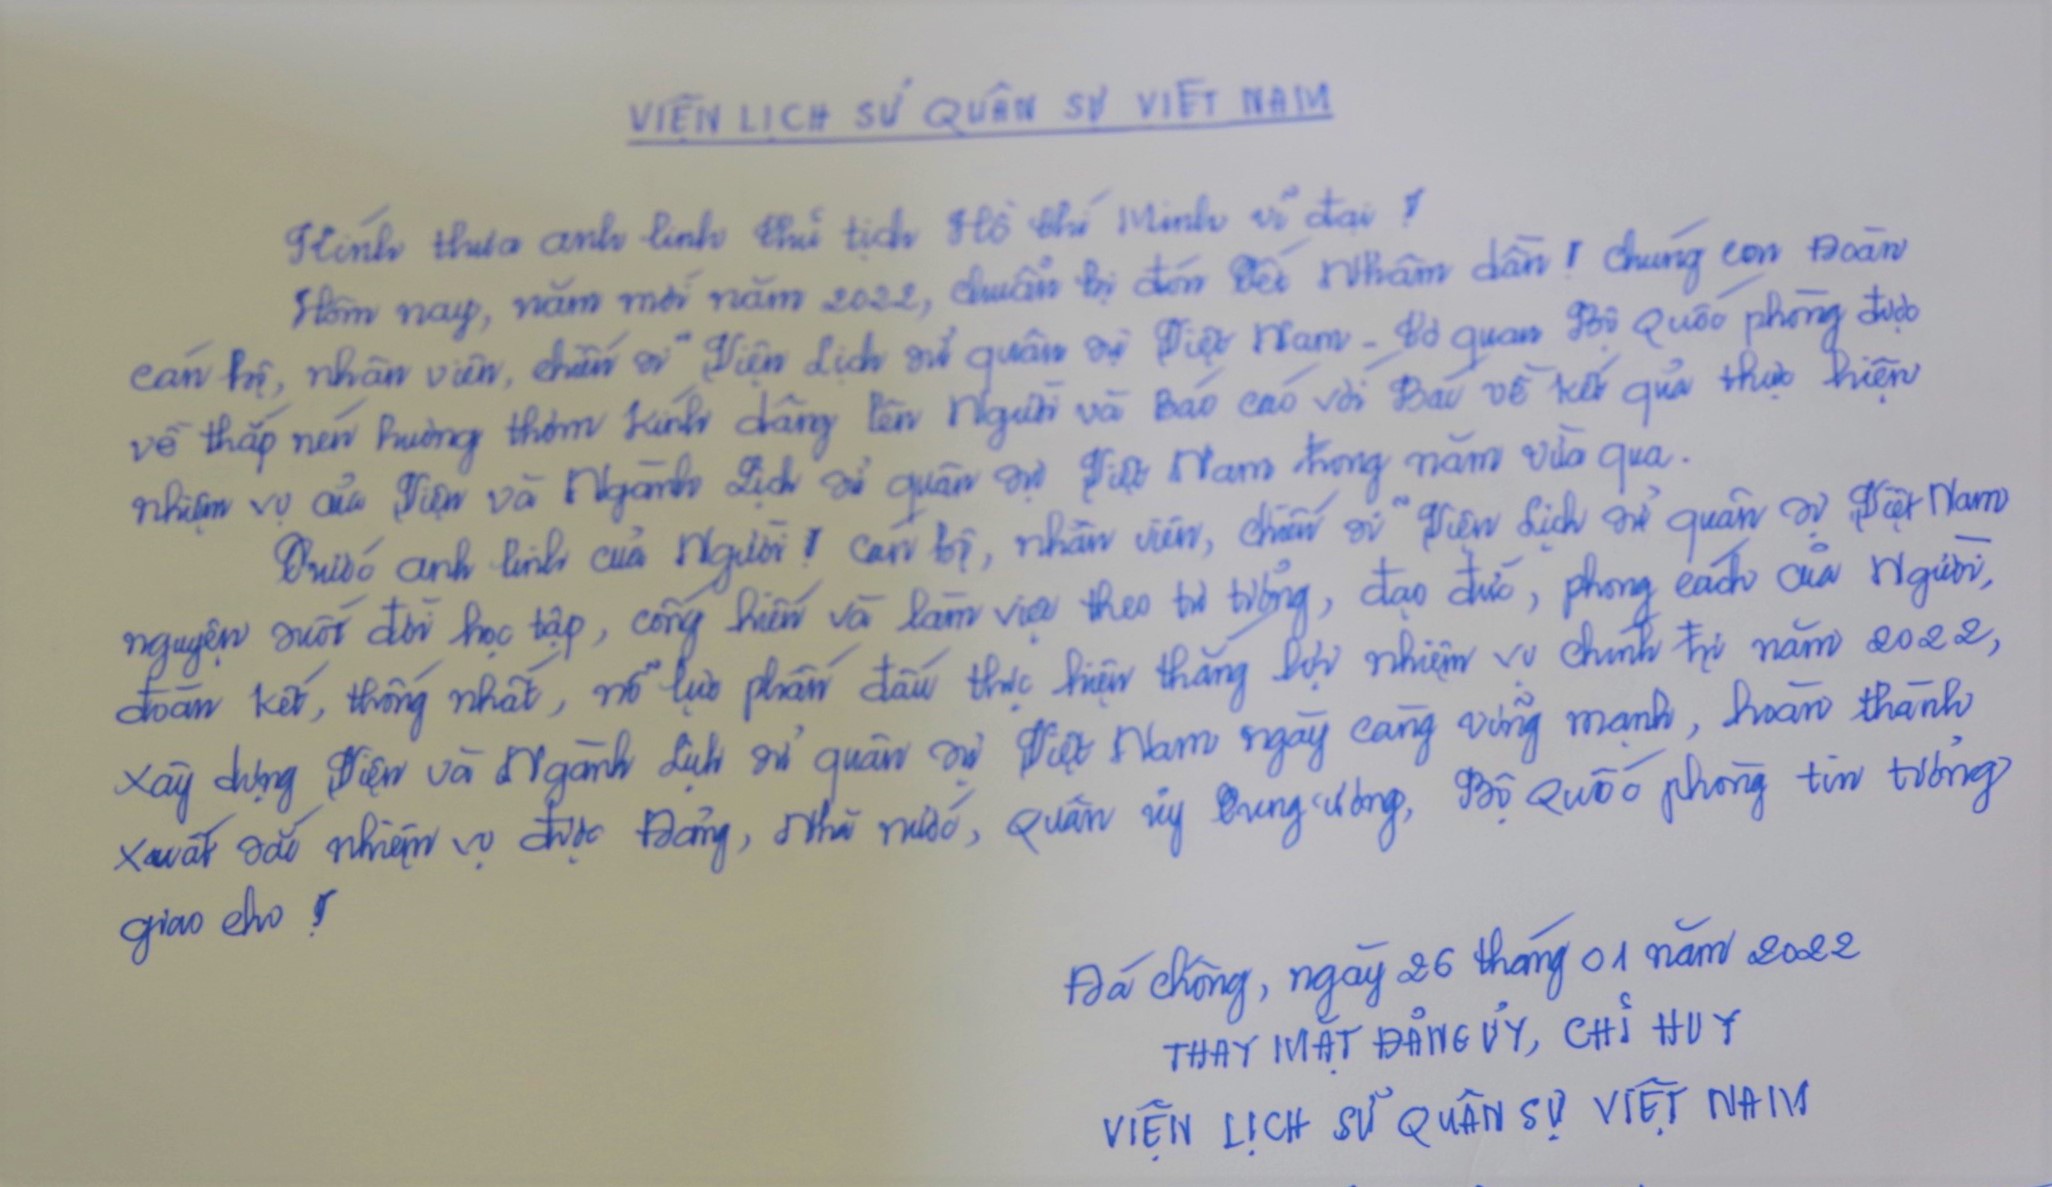 VIỆN LỊCH SỬ QUÂN SỰ VIỆT NAM
Kính thưa anh linh Chủ tịch Hồ Chí Minh vĩ đại!
Hôm nay, năm mới năm 2022, chuẩn bị đón Tết Nhâm dần! Chúng con Đoàn
cán bộ, nhân viên, chiến sĩ Viện Lịch sử quân sự Việt Nam - Cơ quan Bộ Quốc phòng được
về thắp nén hương thơm kính dâng lên Người và Báo cáo với Bác về kết quả thực hiện
nhiệm vụ của Viện và Ngành Lịch sử quân sự Việt Nam trong năm vừa qua.
Trước anh linh của Người! Cán bộ, nhân viên, chiến sĩ Viện Lịch sử quân sự Việt Nam
nguyện suốt đời học tập, cống hiến và làm việc theo tư tưởng, đạo đức, phong cách của Người,
đoàn kết, thống nhất, nỗ lực phấn đấu thực hiện thắng lợi nhiệm vụ chính trị năm 2022,
xây dựng Viện và Ngành Lịch sử quân sự Việt Nam ngày càng vững mạnh, hoàn thành
xuất sắc nhiệm vụ được Đảng, Nhà nước, Quân ủy Trung ương, Bộ Quốc phòng tin tưởng
giao cho!
Đá Chông, ngày 26 tháng 01 năm 2022
THAY MẶT ĐẢNG ỦY, CHỈ HUY
VIỆN LỊCH SỬ QUÂN SỰ VIỆT NAM